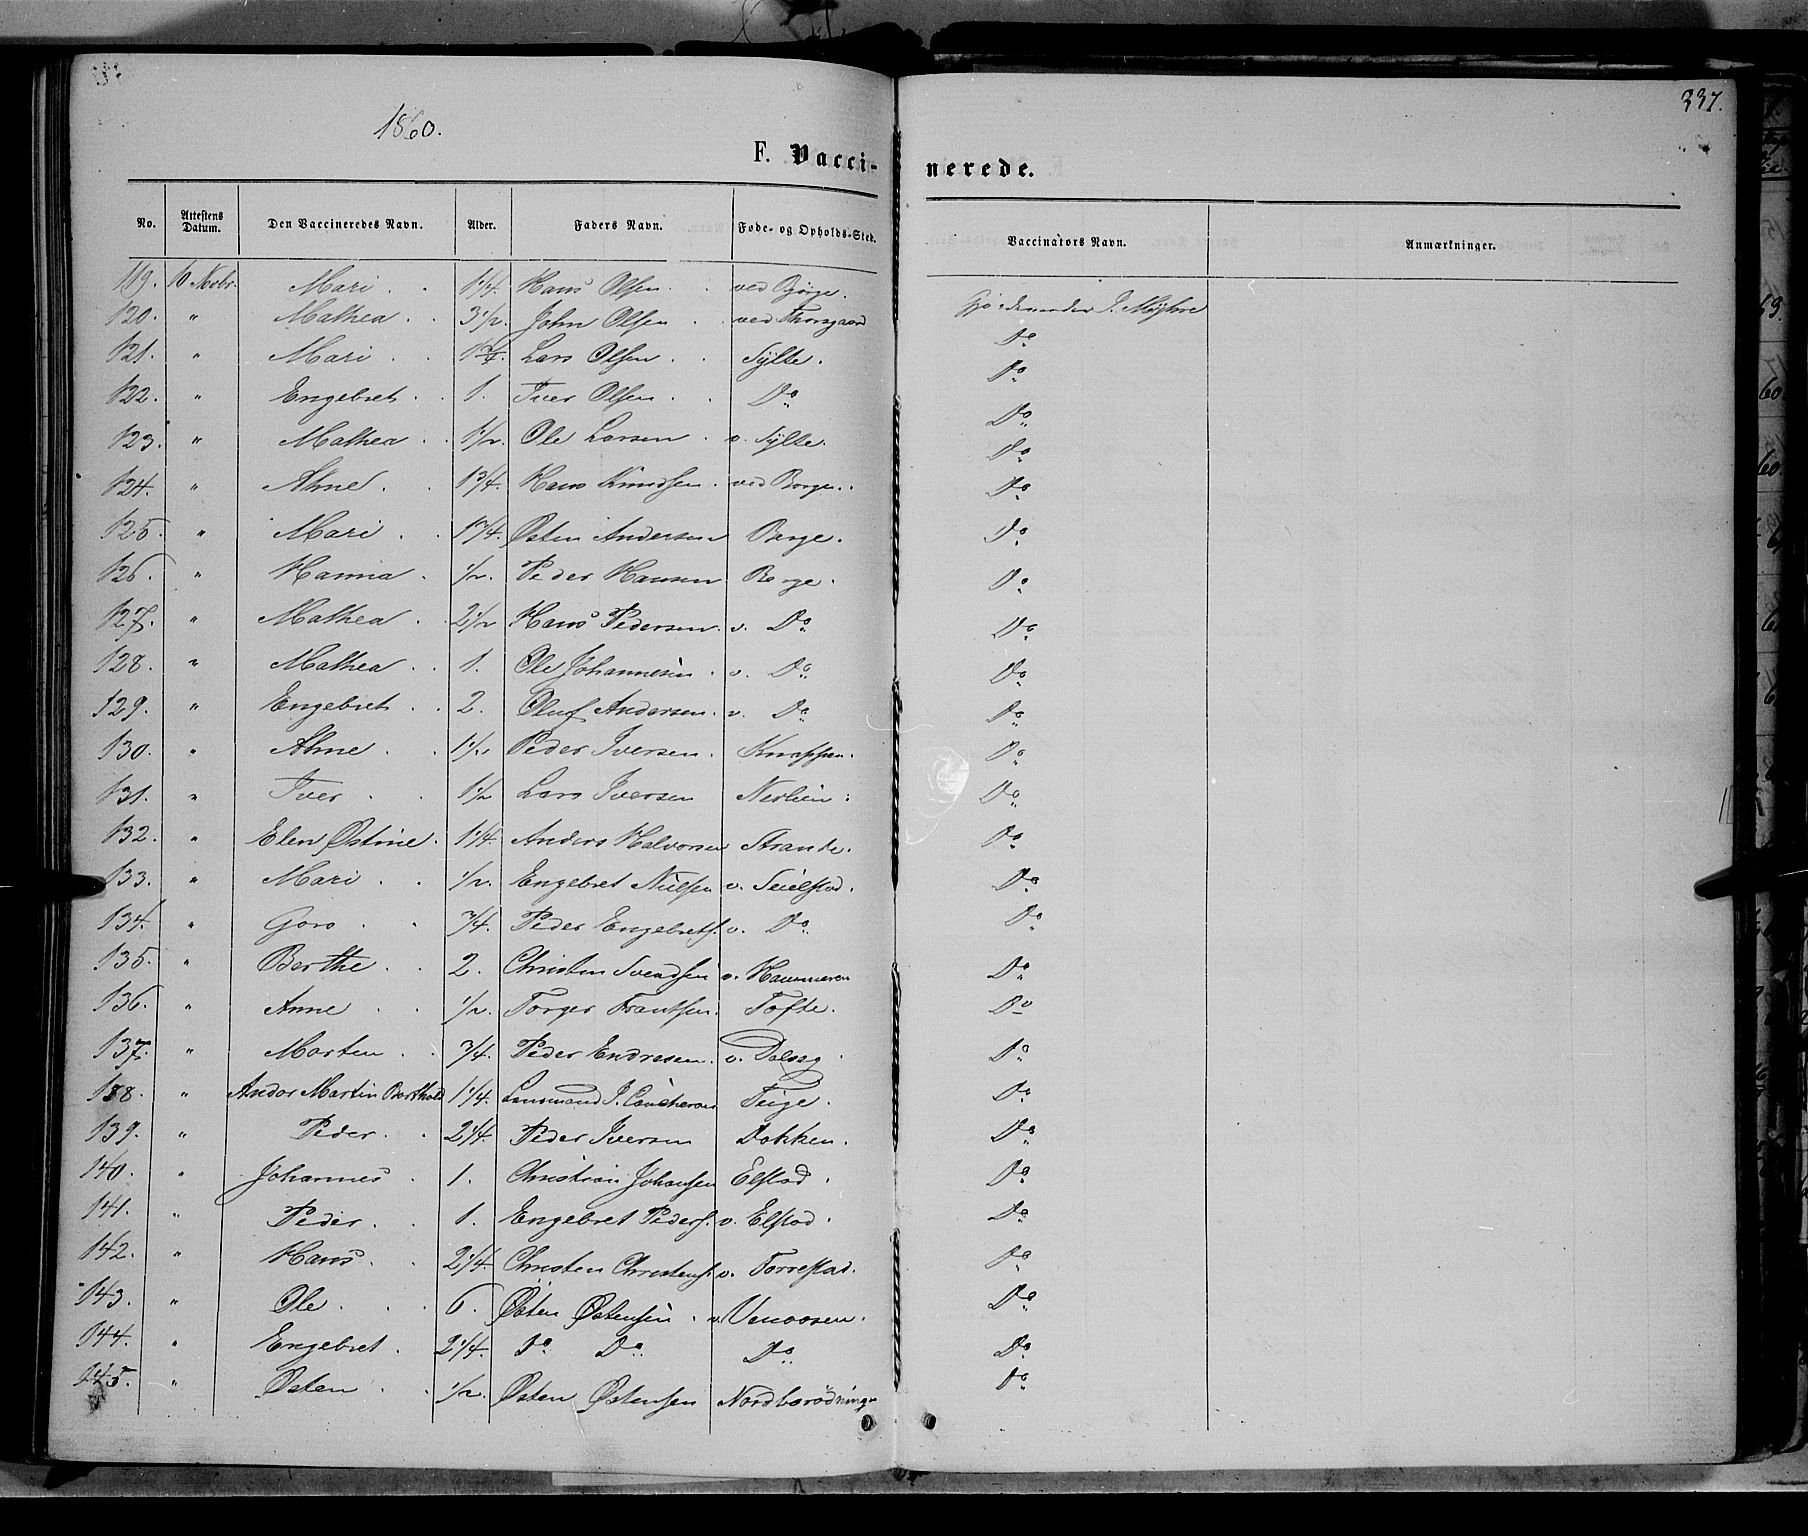 337.
1860.
F. Vacci- nerede.
No. Attestens Datum. Den Vaccineredes Navn. Alder. Faders Navn. Føde- og Opholds-Sted. Vaccinators Navn. Anmærkninger.
119. 10 Novbr. Mari 1 1/4 Hans Olsen ved Bjørge. J. Mÿhre
120. " Mathea 3 1/2. John Olsen ved Thorsgaard Do
121. " Mari Lars Olsen Sylte. Do
122. " Engebret 1. Iver Olsen Do Do
123. " Mathea 1 1/2. Ole Larsen v. Sylte. Do
124. " Ahne 1 3/4. Hans Knudsen ved Borge. Do
125. " Mari 1 3/4. Østen Andersen Berge. Do
126. " Hanna 1/2. Peder Hansen Berge. Do
127. " Mathea 2 1/2 Hans Pedersen v. Do Do
128. " Mathea 1. Ole Johannesen v. Do Do
129. " Engebret 2. Oluf Andersen v. Do Do
130. " Ahne 1 1/2 Peder Iversen. Do
131. " Iver 1 1/2 Lars Iversen Nerlien. Do
132. " Elen Østine 1 1/4. Anders Halvorsen Strande. Do
133. " Mari 1/2. Engebret Nielsen v. Seielstad. Do
134. " Goro 3/4. Peder Engebrets. v. Do Do
135. " Berthe 2. Christen Svendsen v. Hammeren Do
136. " Anne 1/2. Torger Frantsen. Tofte. Do
137. " Morten 3/4. Peder Endresen. v. Dalseg Do
138. " Andor Martin Berthold 1 1/4. Lensmand J. Teige. Do
139. " Peder 2 1/4. Peder Iversen Dokken. Do
140. " Johannes 1. Christian Johansen Elstad. Do
141. " Peder 1. Engebret Peders. v. Elstad. Do
142. " Hans 2 1/4 Christen Christens. v. Forrestad. Do
143. " Ole 6. Østen Østensen v. Venaasen. Do
144. " Engebret 2 1/4. Do Do Do Do
145. " Østen 1/2. Østen Østensen Do